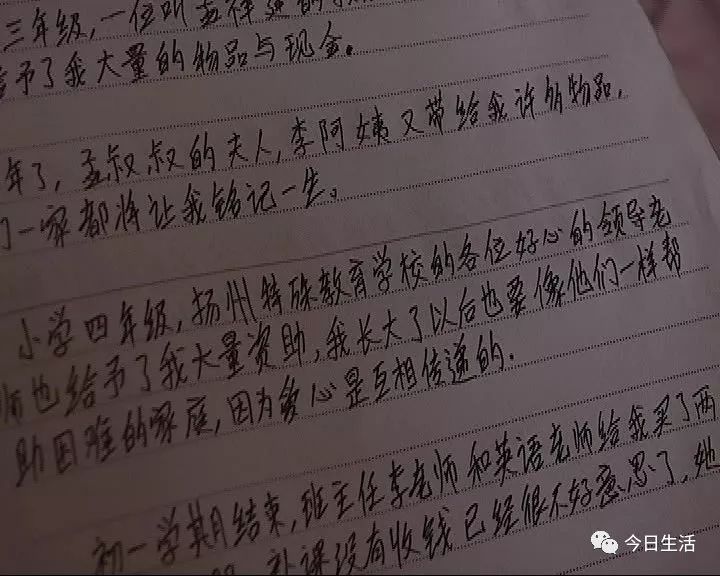 三年级,一位叫孟祥
给予了我大量的物品与现金。
年了,孟叔叔的夫人,李阿姨又带给我许多物品,
们一家都将让我铭记一生。
小学四年级,扬州特殊教育学校的各位好心的领导老
师也给予了我大量资助,我长大了以后也要像他们一样帮
助困难的家庭,因为爱心是互相传递的.
初一学期结束,班主任李老师和英语老师给我买了两
补课没有收钱已经很不好意思了,她
今日生活